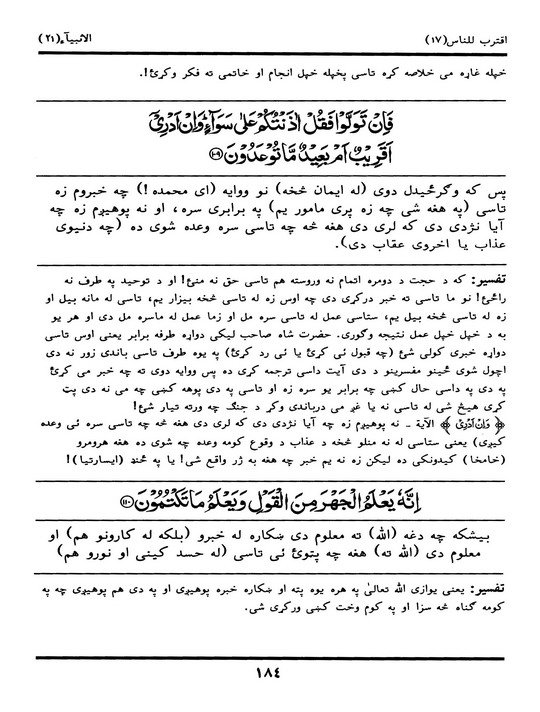 اقترب للناس(١٧)
الانبيآء(٢١)
خپله غاړه می خلاصه کړه تاسی پخپله خپل انجام او خاتمی ته فکر وکړئ!.
فَاِنْ تَوَلَّوْا فَقُلْ اٰذَنْتُكُمْ عَلٰى سَوَآءٍ ؕ وَاِنْ اَدْرِىْۤ
اَقَرِيْبٌ اَمْ بَعِيْدٌ مَّا تُوْعَدُوْنَ ﴿۱۰۹﴾
پس که وګرځیدل دوی (له ایمان څخه) نو ووایه (ای محمده!) چه خبروم زه
تاسی (په هغه شی چه زه پری مامور یم) په برابری سره، او نه پوهیږم زه چه
آیا نژدی دی که لری دی هغه څه چه تاسی سره وعده شوی ده (چه دنیوی
عذاب یا اخروی عقاب دی).
تفسیر: که د حجت د دومره اتمام نه وروسته هم تاسی حق نه منئ! او د توحید په طرف نه
راځئ! نو ما تاسی ته خبر درکړی دی چه اوس زه له تاسی څخه بیزار یم، تاسی له مانه بیل او
زه له تاسی څخه بیل یم، ستاسی عمل له تاسی سره مل او زما عمل له ماسره مل دی او هر یو
به د خپل خپل عمل نتیجه وګوری. حضرت شاه صاحب لیکی دواړه طرفه برابر یعنی اوس تاسی
دواړه خبری کولی شئ (چه قبول ئی کړئ یا ئی رد کړئ) په یوه طرف تاسی باندی زور نه دی
اچول شوی ځینو مفسرینو د دی آیت داسی ترجمه کړی ده پس ووایه دوی ته چه خبر می کړئ
په دی په داسی حال کښی چه برابر یو سره زه او تاسی په دی پوهه کښی چه می نه دی پټ
کړی هیڅ شی له تاسی نه یا غږ می درباندی وکړ د جنګ چه ورته تیار شئ!
﴿ وَاِنْ اَدْرِىْۤ ﴾ الآیة ـ نه پوهیږم زه چه آیا نژدی دی که لری دی هغه څه چه تاسی سره ئی وعده
کیږی) یعنی ستاسی له نه منلو څخه د عذاب د وقوع کومه وعده چه شوی ده هغه هرومرو
(خامخا) کیدونکی ده لیکن زه نه یم خبر چه هغه به ژر واقع شی! یا په ځنډ (ایسارتیا)!
اِنَّهٗ يَعْلَمُ الْجَهْرَ مِنَ الْقَوْلِ وَيَعْلَمُ مَا تَكْتُمُوْنَ ﴿۱۱۰﴾
بیشکه چه دغه (الله) ته معلوم دی ښکاره له خبرو (بلکه له کارونو هم) او
معلوم دی (الله ته) هغه چه پټوئ ئی تاسی (له حسد کینی او نورو هم)
تفسیر: یعنی یوازی الله تعالیٰ په هره یوه پټه او ښکاره خبره پوهیږی او په دی هم پوهیږی چه په
کومه ګناه څه سزا او په کوم وخت کښی ورکړی شی.
١٨٤